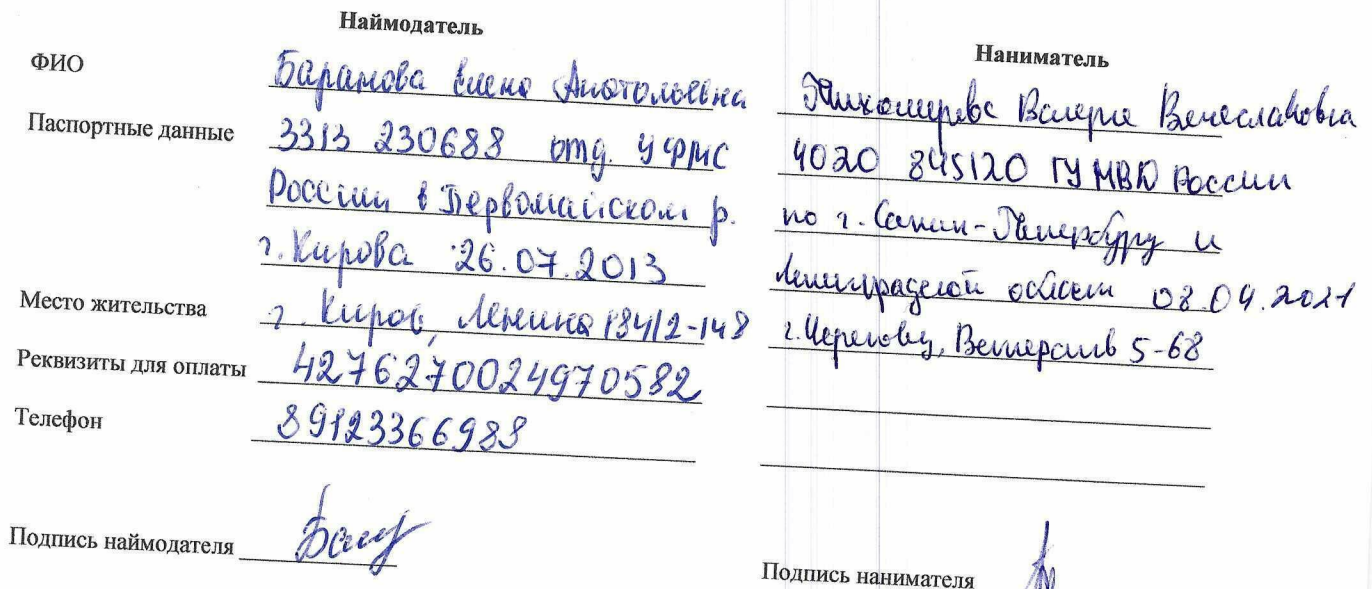 Наймодатель
ФИО Баранова Елена Анатольевна
Паспортные данные 3313 230688 отд. УФМС
России в Первомайском р.
г. Кирова 26.07.2013
Место жительства г. Киров, Ленина 184/2-148
Реквизиты для оплаты 4276270024970582
Телефон 89123366988
Подпись наймодателя
Наниматель
Тихомирова Валерия Вячеславовна
4020 845120 ГУ МВД России
по г. Санкт-Петербургу и
Ленинградской области 08.04.2021
г. Череповец, Ветеранов 5-68
Подпись нанимателя